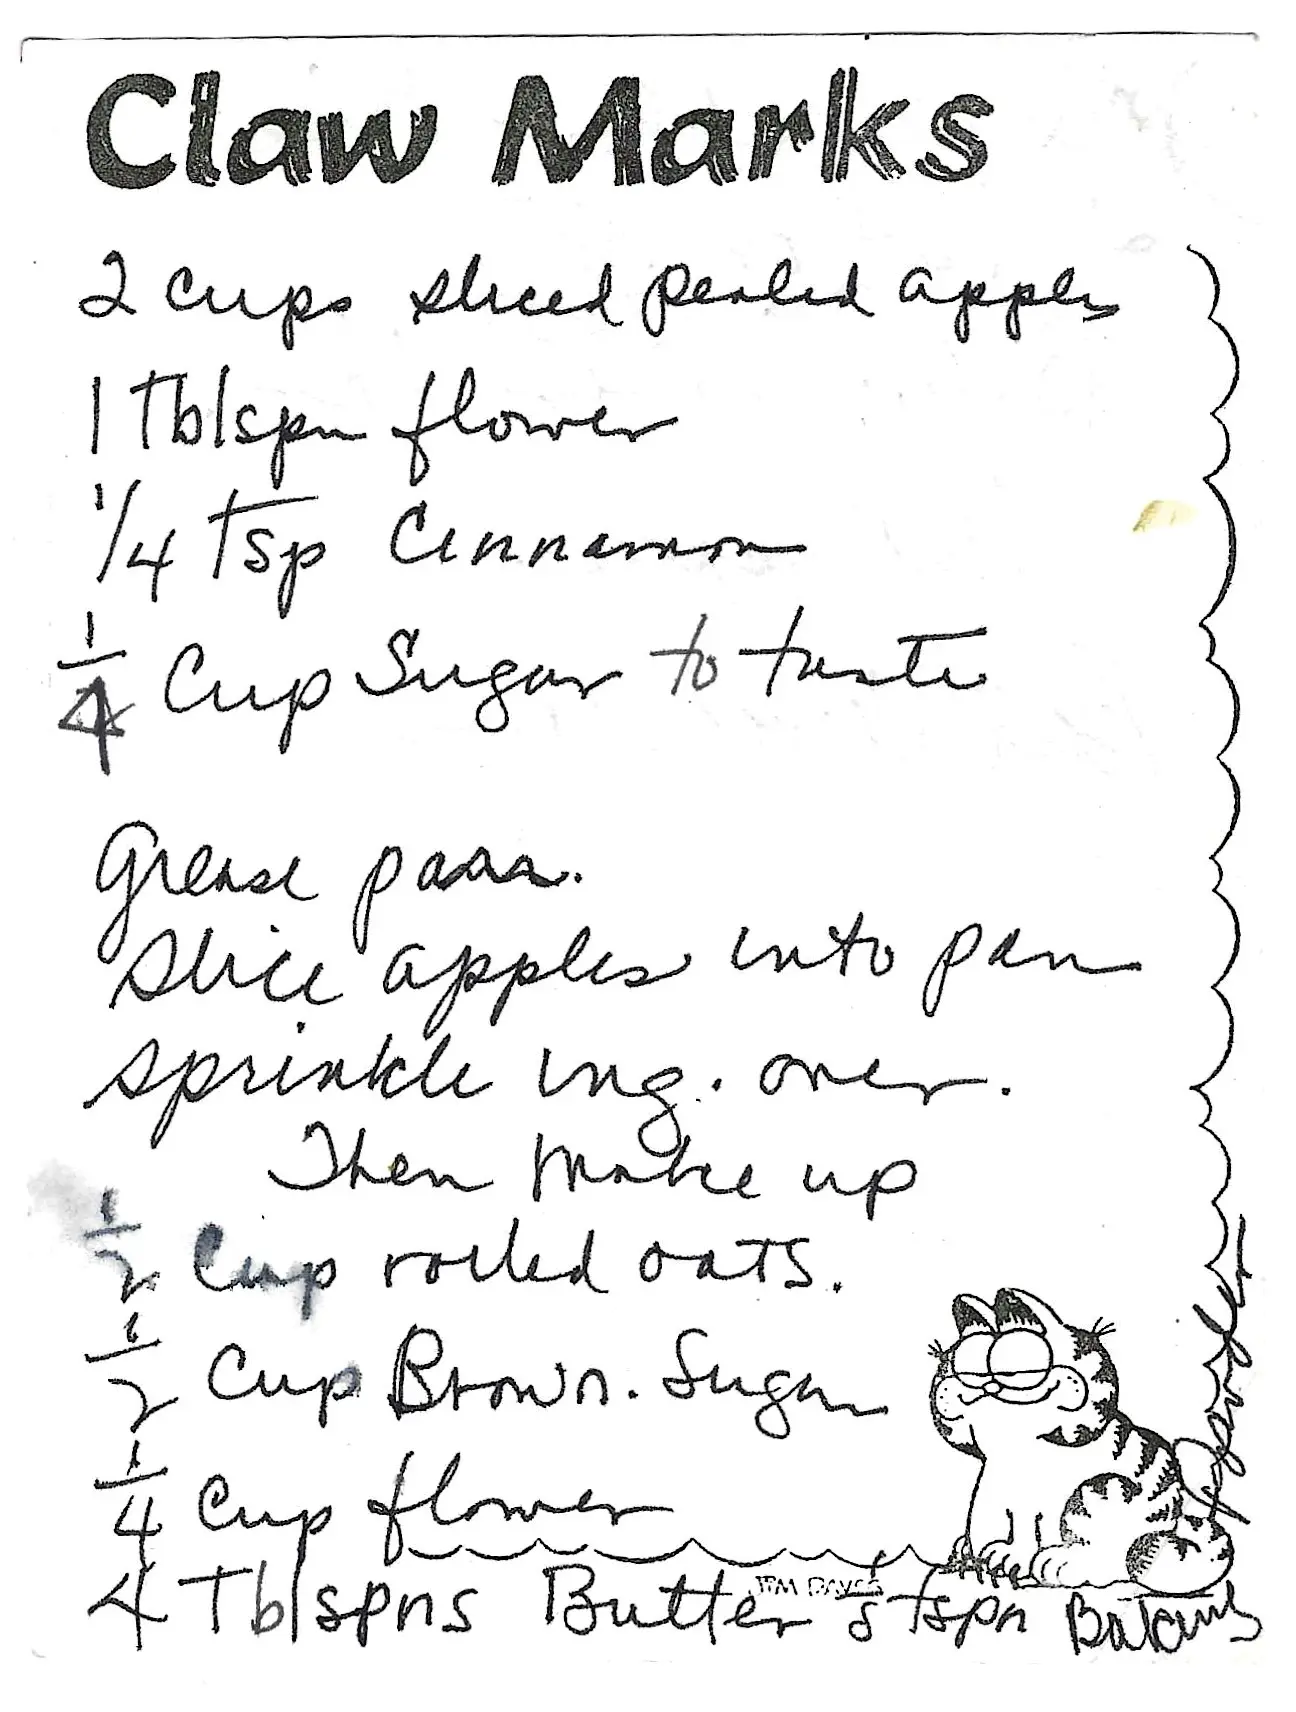 Claw Marks
2 cups sliced pealed apples
1 Tblspn flower
1/4 Tsp Cinnamon
1/4 Cup Sugar to taste
Grease pan.
Slice apples into pan
sprinkle ing. over.
Then Make up
1/2 Cup rolled oats.
1/2 Cup Brown. Sugar
1/4 Cup flower
JIM DAVIS
4 Tblspns Butter tspn Baking